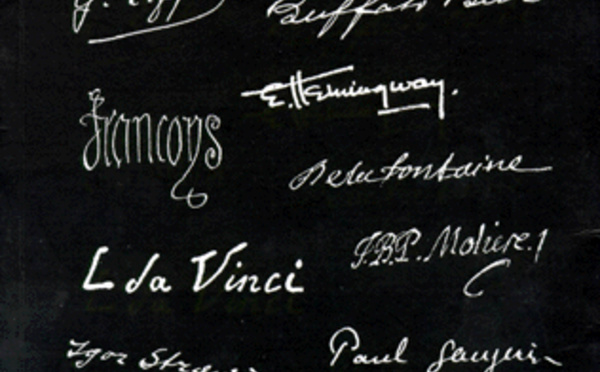 Buffalo Bill
E. Hemingway.
francoys
De la Fontaine
J.B.P. Moliere.
L da Vinci
Igor
Paul Gauguin